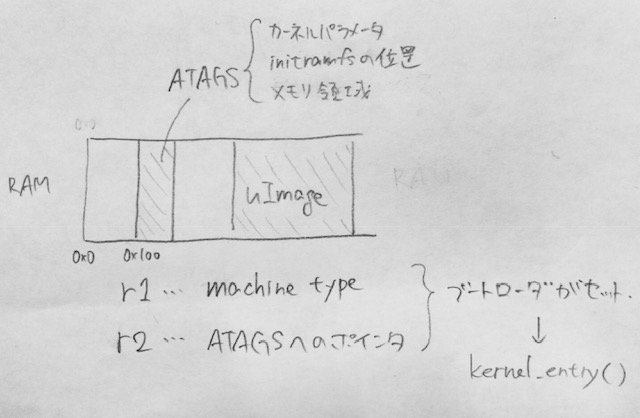 カーネルパラメータ
initramfsの位置
メモリ領域
ATAGS
RAM
uImage
0x0
0x100
r1 … machine type
r2 … ATAGSへのポインタ
ブートローダがセット.
↓
kernel_entry()